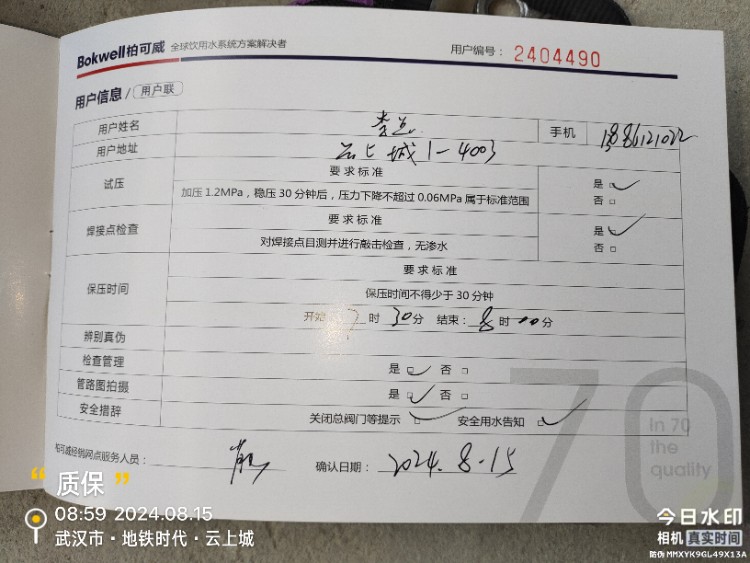 Bokwell柏可威 全球饮用水系统方案解决者
用户编号： 2404490
用户信息 / 用户联
用户姓名 李 手机
用户地址 云上城1-4003
试压 要求标准
加压1.2MPa，稳压30分钟后，压力下降不超过0.06MPa属于标准范围
是
否
焊接点检查 要求标准
对焊接点目测并进行敲击检查，无渗水
是
否
保压时间 要求标准
保压时间不得少于30分钟
开始 时 30分 结束： 8 时 00分
辨别真伪
检查管理 是 否
管路图拍摄 是 否
安全措辞 关闭总阀门等提示 安全用水告知
70
In 70
the
quality
柏可威经销网点服务人员：
确认日期： 2024.8.15
质保
08:59 2024.08.15
武汉市·地铁时代·云上城
今日水印
相机 真实时间
防伪 MMXYK9GL49X13A